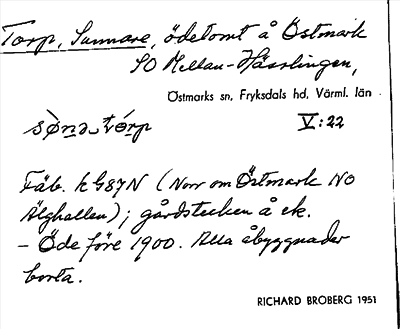 Torp, Sunnare, ödetomt å Östmark
SO Mellan-Hässlingen,
Östmarks sn, Fryksdals hd, Värml. län
V:22
Fäb. k G87N (Norr om Östmark NO
Älghallen); gårdstecken å ek.
– Öde före 1900. Alla åbyggnader
borta.
RICHARD BROBERG 1951